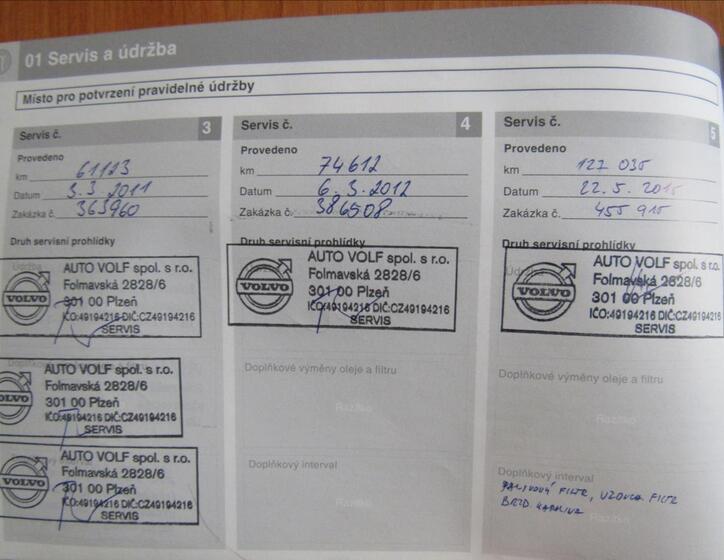 01 Servis a údržba
Místo pro potvrzení pravidelné údržby
Servis č. 3
Provedeno
km 61123
Datum 3.3.2011
Zakázka č. 363960
Druh servisní prohlídky
VOLVO
AUTO VOLF spol. s r.o.
Folmavská 2828/6
301 00 Plzeň
IČO:49194216 DIČ:CZ49194216
SERVIS
VOLVO
AUTO VOLF spol. s r.o.
Folmavská 2828/6
301 00 Plzeň
IČO:49194216 DIČ:CZ49194216
SERVIS
VOLVO
AUTO VOLF spol. s r.o.
Folmavská 2828/6
301 00 Plzeň
IČO:49194216 DIČ:CZ49194216
SERVIS
Servis č. 4
Provedeno
km 74612
Datum 6.3.2012
Zakázka č. 386508
Druh servisní prohlídky
VOLVO
AUTO VOLF spol. s r.o.
Folmavská 2828/6
301 00 Plzeň
IČO:49194216 DIČ:CZ49194216
SERVIS
Doplňkové výměny oleje a filtru
Razítko
Doplňkový interval
Razítko
Servis č. 5
Provedeno
km 127 035
Datum 22.5.2015
Zakázka č. 455 915
Druh servisní prohlídky
VOLVO
AUTO VOLF spol. s r.o.
Folmavská 2828/6
301 00 Plzeň
IČO:49194216 DIČ:CZ49194216
SERVIS
Doplňkové výměny oleje a filtru
Razítko
Doplňkový interval
PALIVOVÝ FILTR, VZDUCH. FILTR
BRZD. KAPALINA
Razítko